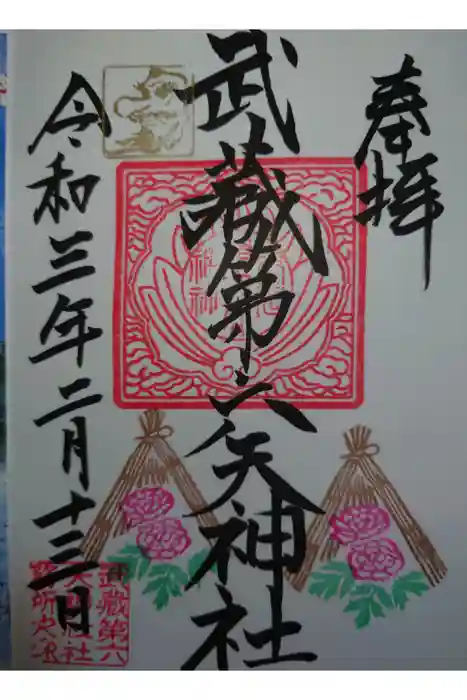 奉拝
武蔵第六天神社
令和三年二月十三日
武蔵第六
天神社